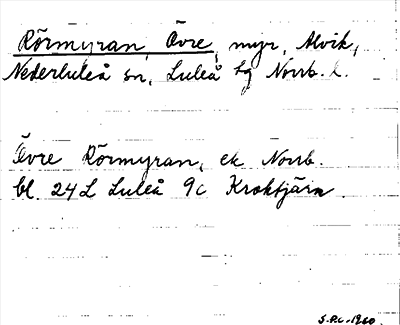 Rörmyran, Övre, myr, Alvik,
Nederluleå sn, Luleå tg Norrb. l.
Övre Rörmyran, ek Norrb.
bl. 24 L Luleå 9c Kroktjärn.
1960